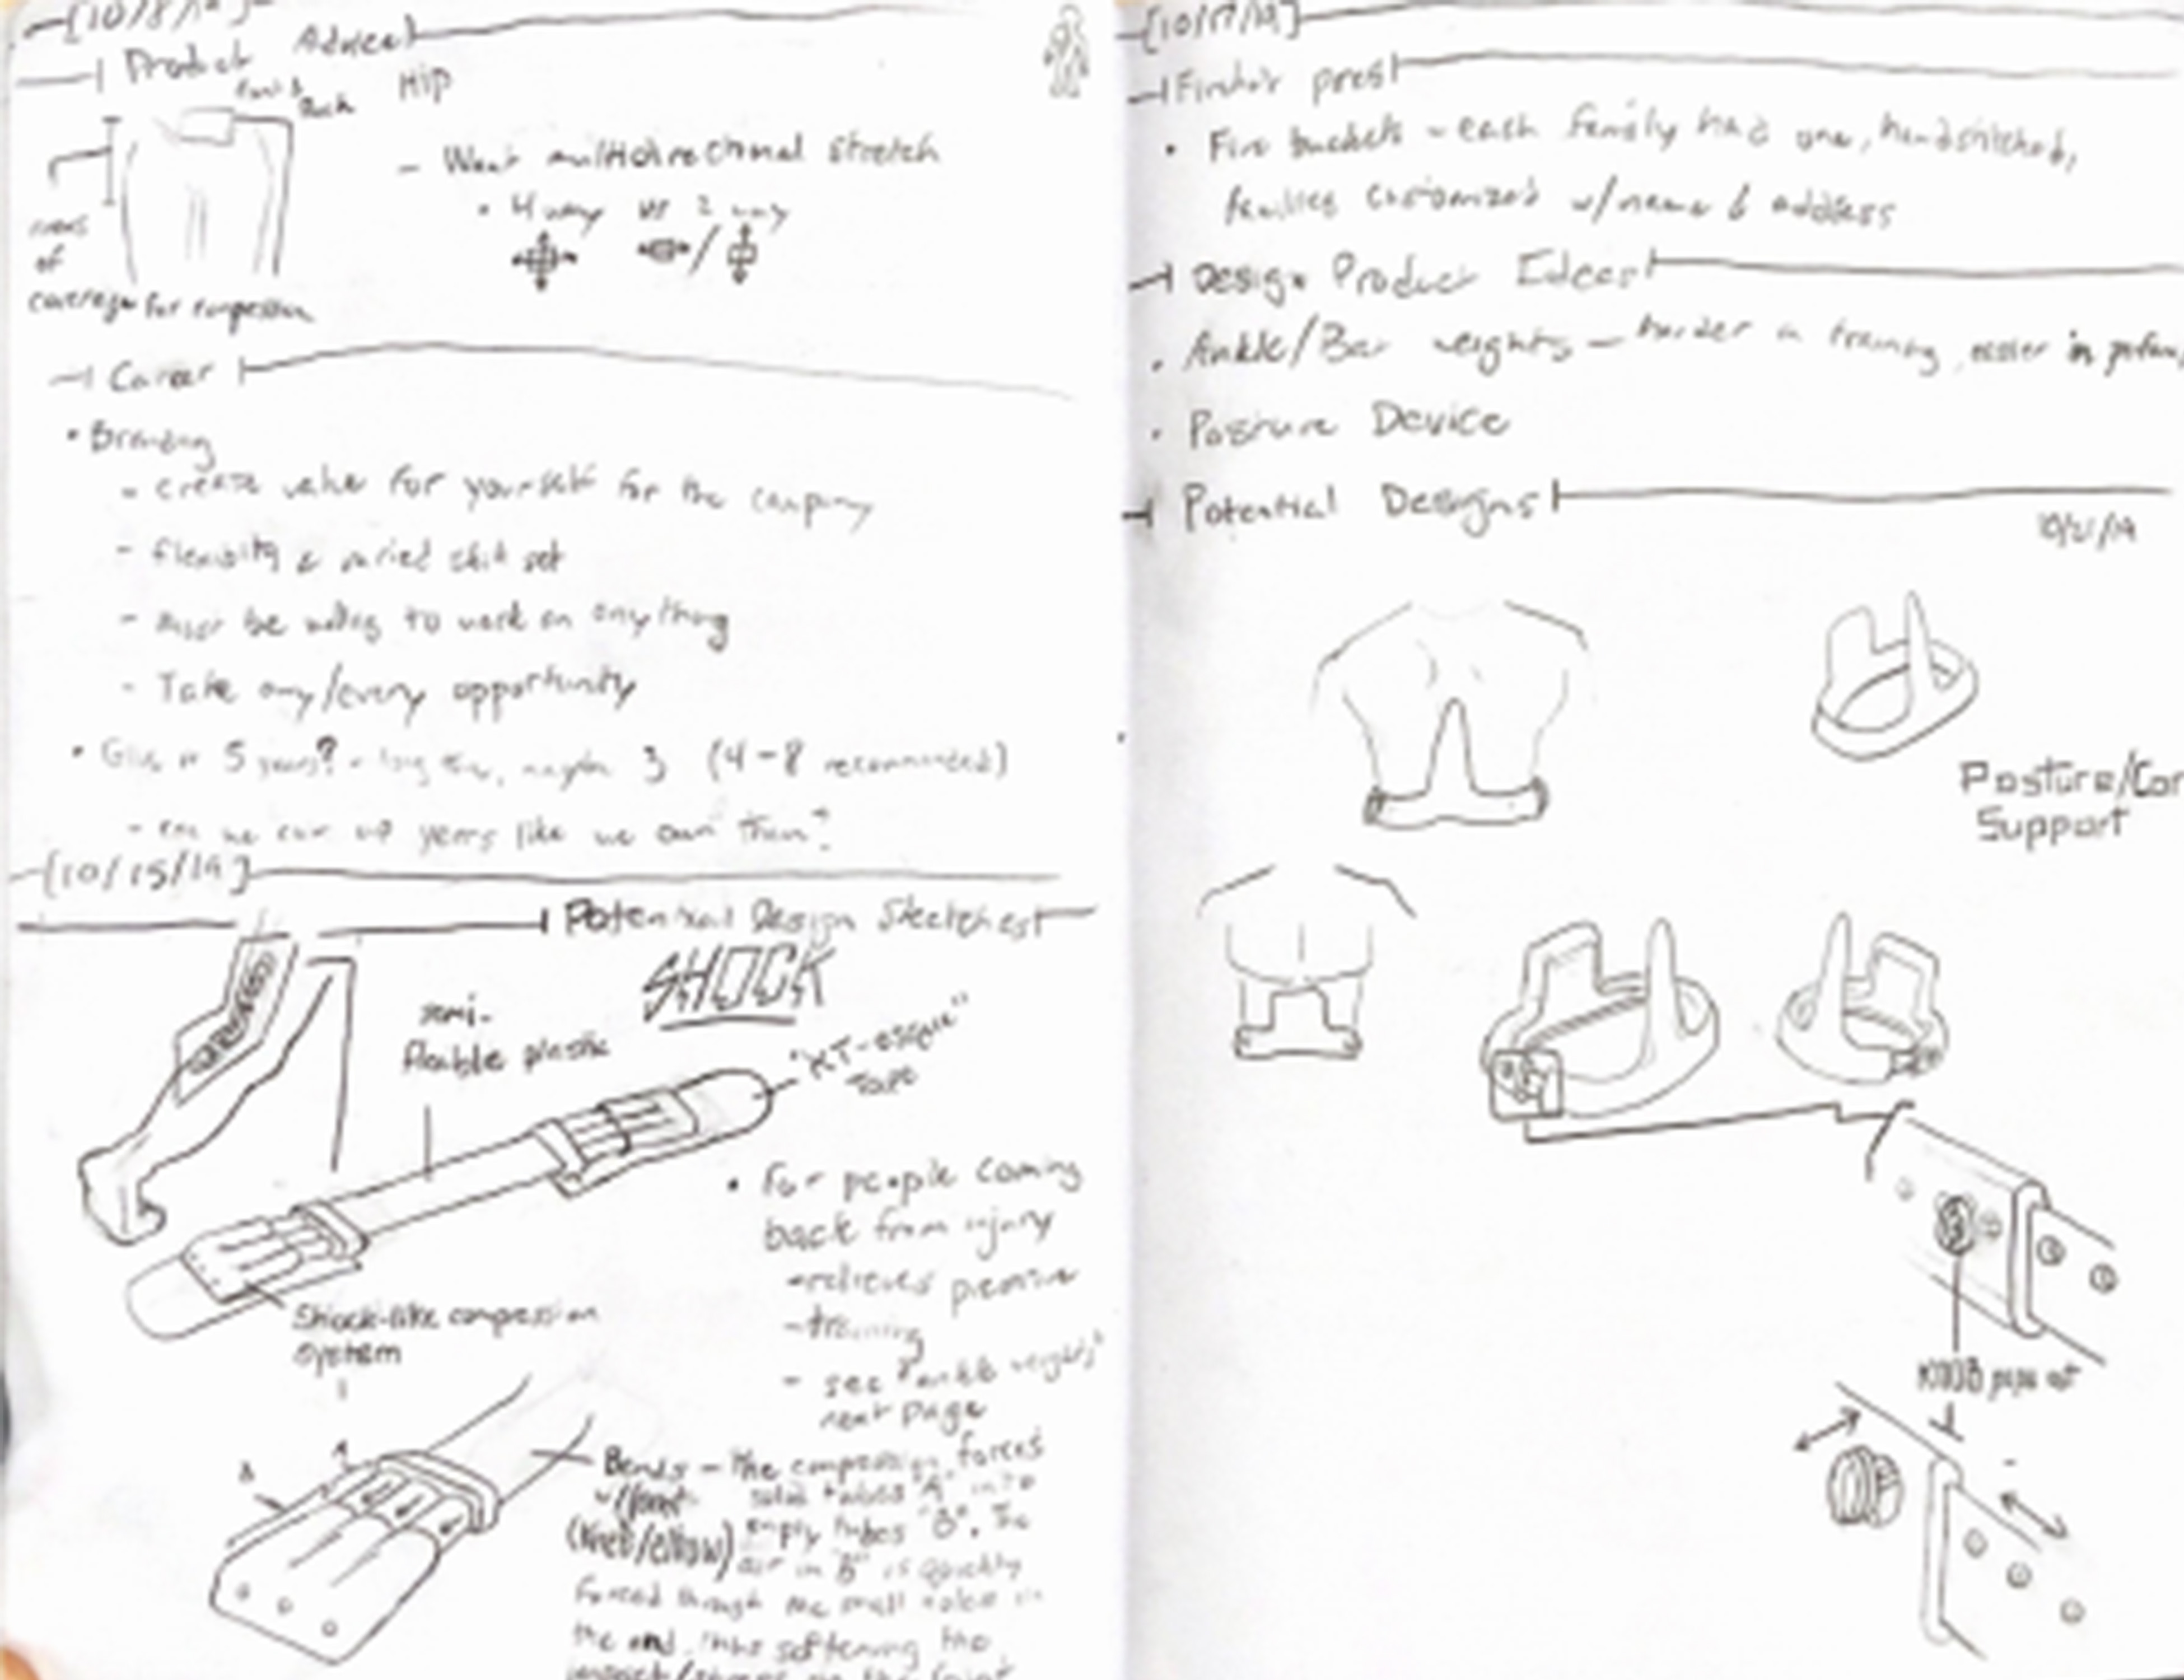 Product Advice
Hip
- Want multidirectional stretch
• 4 way vs 2 way
areas
of
coverage for compession
Career
• Branding
- create value for yourself for the company
- flexibility & varied skill set
- must be willing to work on anything
- Take any/every opportunity
5 years? - long time, maybe 3 (4-8 recommended)
years like we own them?
[10/15/19]
Design Sketches
SHOCK
semi-
flexible plastic
"KT-esque"
Tape
Shock-like compession
system
• For people coming
back from injury
- relieves pressure
- training
- see "ankle weights"
next page
A
B
Bends - the compession forces
w/ joint solid tubes "A" into
(knee/elbow) empty tubes "B". The
air in "B" is quickly
forced through the small holes in
the end, thus softening the
the joint
[10/17/19]
pres
• Fire buckets - each family had one, handstitched,
families customized w/ name & address
Design Product Ideas
• Ankle/Bar weights - harder in training, easier in
• Posture Device
Potential Designs
10/21/19
Posture/Cor
Support
KNOB pops out